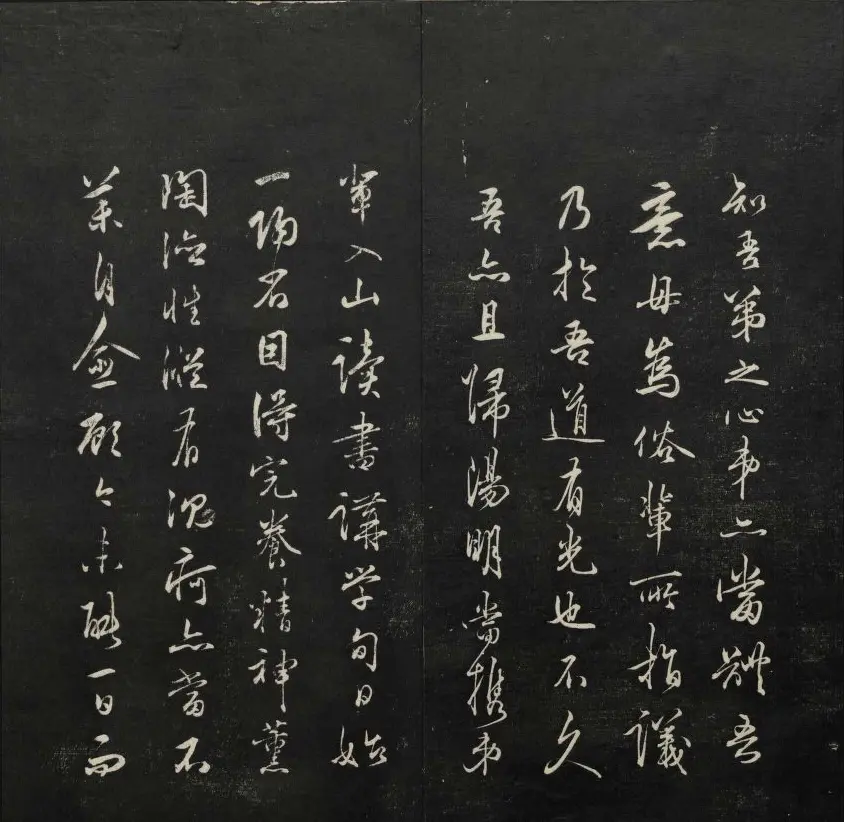 知吾弟之心弟亦當體吾
意毋為俗輩所指議
乃於吾道有光也不久
吾亦且歸陽明當攜弟
輩入山讀書講學旬日始
一歸省因得完養精神薰
陶德性縱有沉痾亦當不
藥自愈顧今未能一日而